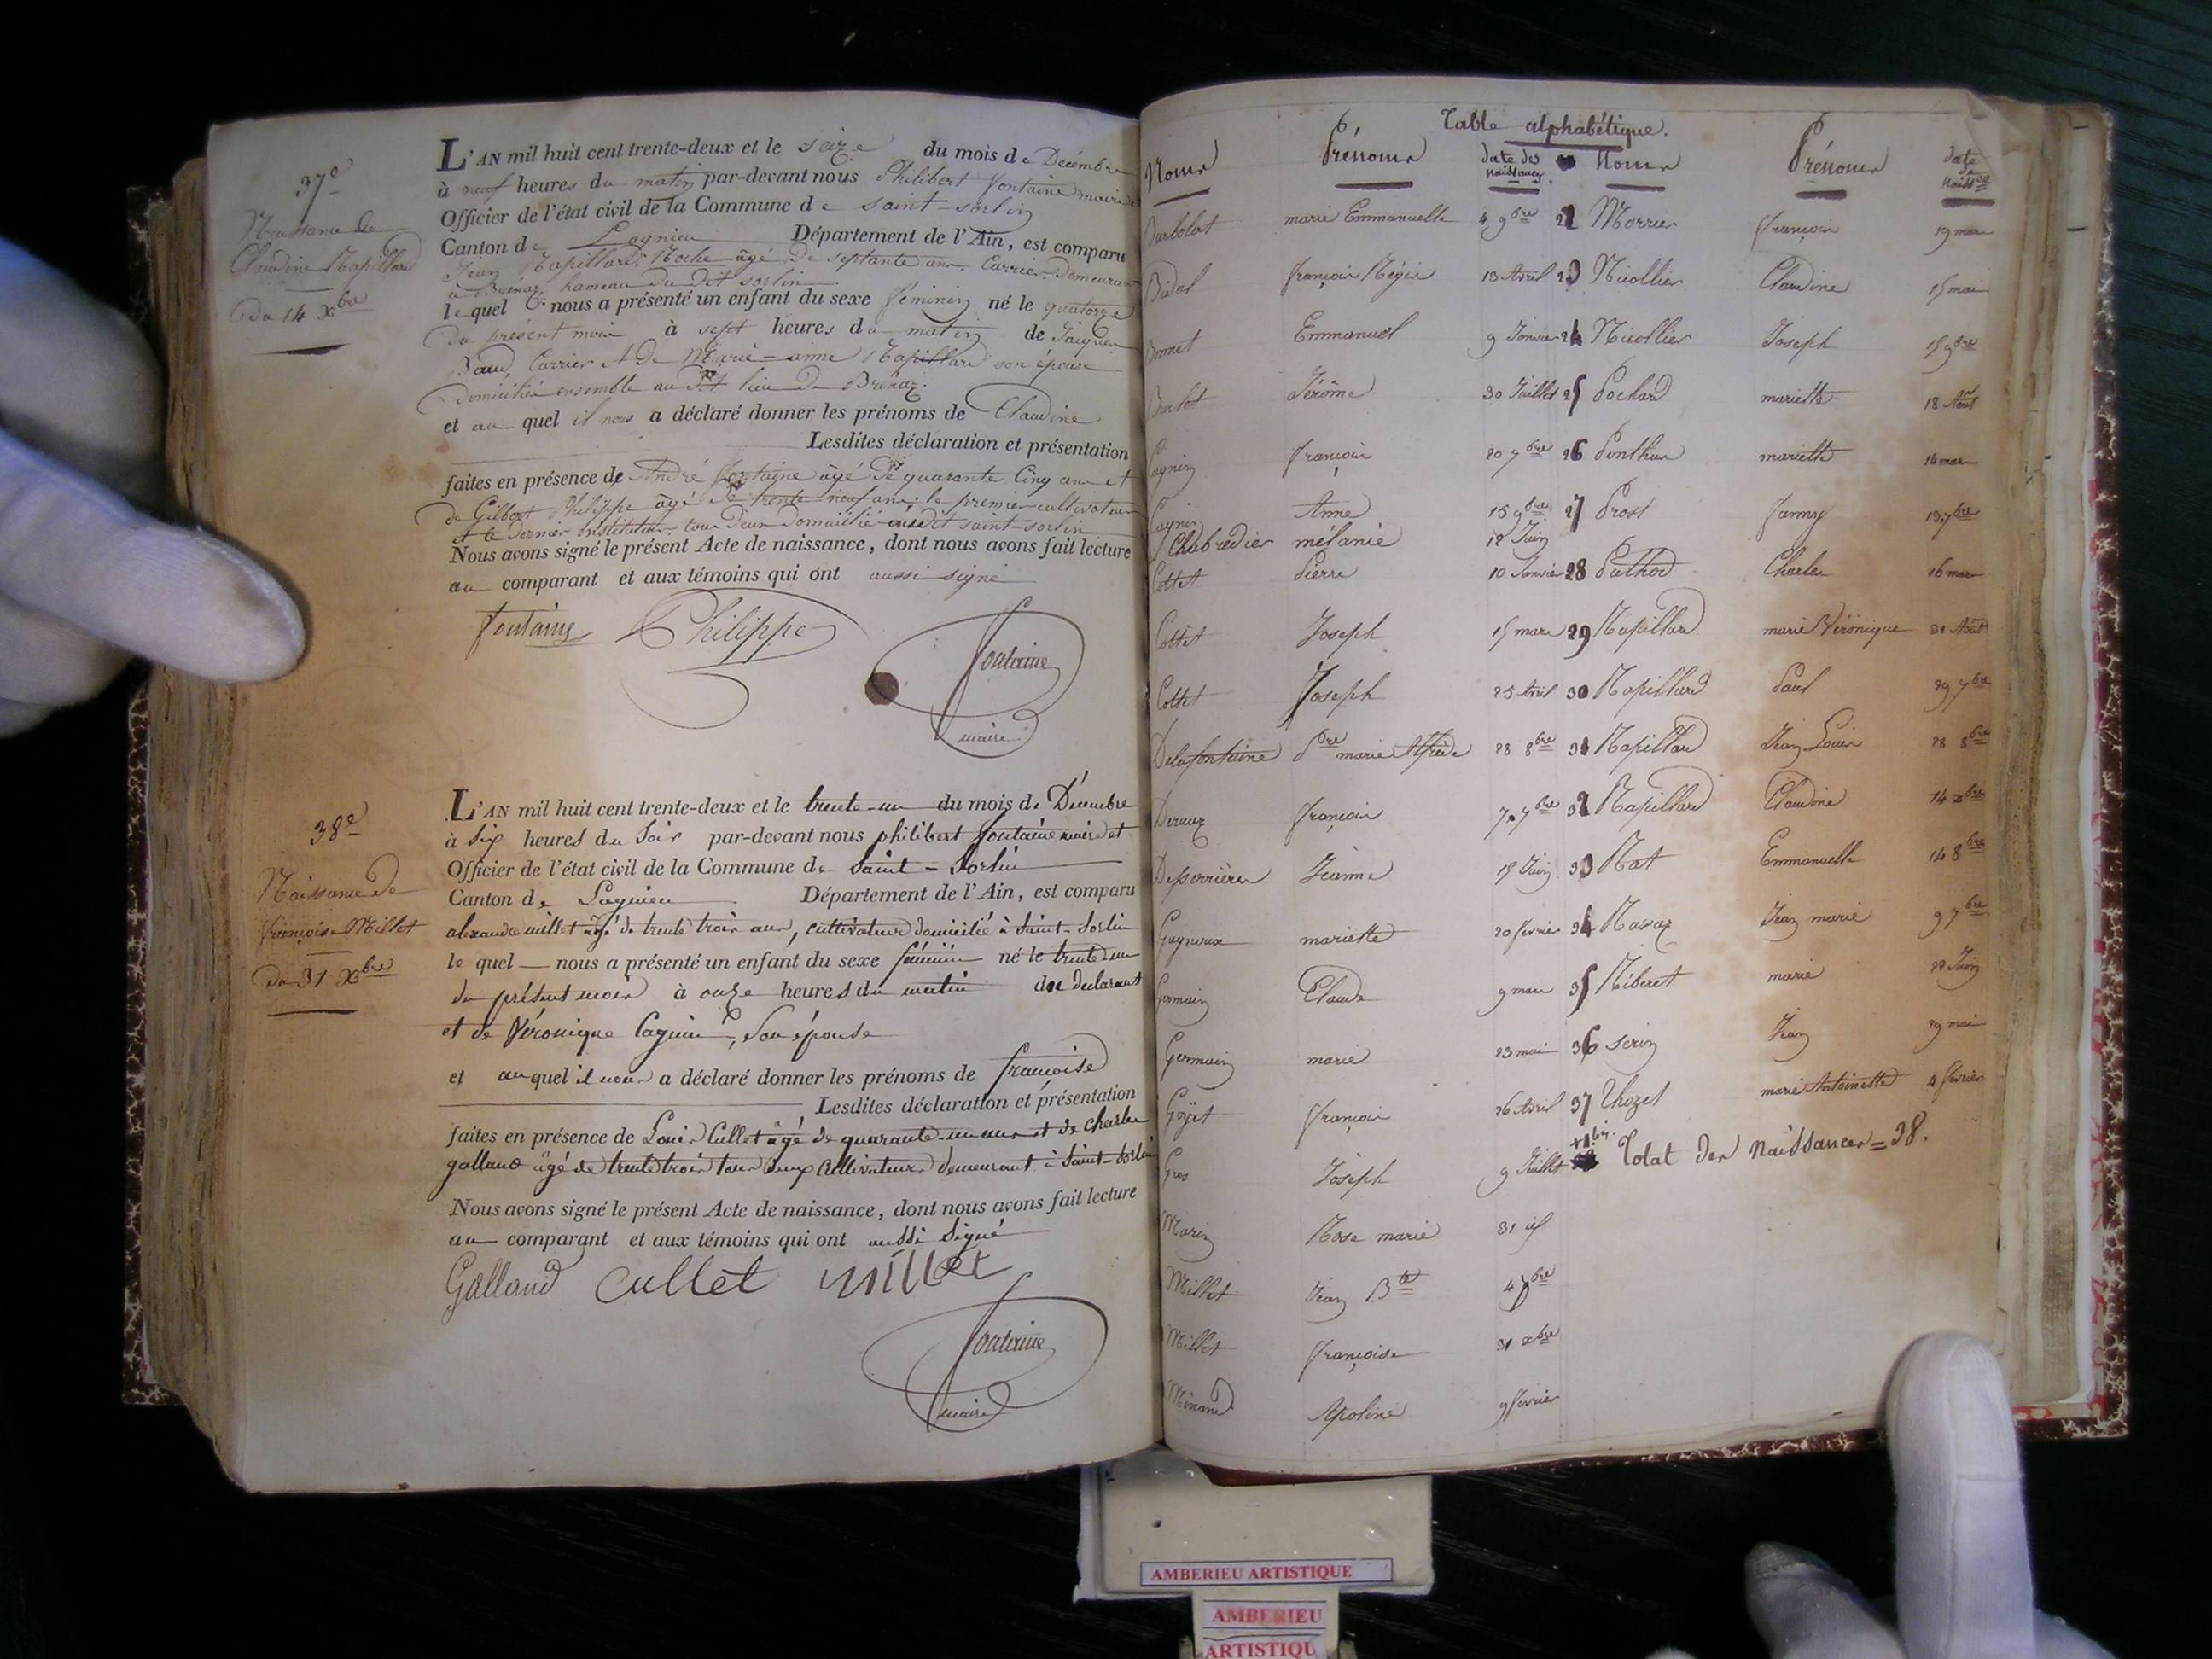 37e
Naissance de
Claudine Rapillard
Du 14 Xbre
L'AN mil huit cent trente-deux et le seize du mois de Décembre
à neuf heures du matin par-devant nous Philibert fontaine maire
Officier de l'état civil de la Commune de saint-sorlin
Canton de Lagnieu Département de l'Ain, est comparu
Jean Rapillard Roche âgé de septante ans, Carrier Demeurant
à hameau du dit sorlin
lequel nous a présenté un enfant du sexe féminin né le quatorze
du présent mois à sept heures du matin de Jacques
Baud, Carrier et de Marie-anne Rapillard son épouse
Domiciliés ensemble au dit lieu de
et au quel il nous a déclaré donner les prénoms de Claudine
Lesdites déclaration et présentation
faites en présence de André fontaine âgé de quarante Cinq ans et
de Gilbert Philippe âgé de trente neuf ans; le premier cultivateur
et le dernier Instituteur tous deux Domiciliés audit saint-sorlin
Nous avons signé le présent Acte de naissance, dont nous avons fait lecture
au comparant et aux témoins qui ont aussi signé
fontaine Philippe
fontaine
maire
38e
Naissance de
françoise Millet
Du 31 Xbre
L'AN mil huit cent trente-deux et le trente-un du mois de Décembre
à six heures du soir par-devant nous philibert fontaine maire et
Officier de l'état civil de la Commune de Saint-Sorlin
Canton de Lagnieu Département de l'Ain, est comparu
alexandre millet âgé de trente trois ans, cultivateur domicilié à Saint-Sorlin
le quel nous a présenté un enfant du sexe féminin né le trente un
du présent mois à onze heures du matin du declarant
et de Véronique Cagnin, son épouse
et auquel il nous a déclaré donner les prénoms de françoise
Lesdites déclaration et présentation
faites en présence de Louis Cullet âgé de quarante-un ans et de charles
galland âgé de trente trois tous deux Cultivateurs demeurant à Saint-Sorlin
Nous avons signé le présent Acte de naissance, dont nous avons fait lecture
au comparant et aux témoins qui ont aussi Signé
Galland Cullet millet
fontaine
maire
Table alphabétique.
Noms Prénoms date des naissances Noms Prénoms date de naissce
Barbolat marie Emmanuelle 4 9bre 22 Morrier françois 19 mars
Bidal françois Régis 13 Avril 23 Nicollier Claudine 15 mai
Bonnet Emmanuel 9 Janvier 24 Nicollier Joseph 15 9bre
Jérôme 30 Juillet 25 Pochard mariette 18 Août
Cagnin françois 20 7bre 26 Ponthus mariette 14 mars
Cagnin Anne 15 9bre 27 Prost fanny 13 7bre
Chabredier mélanie 12 Juin
Cottet Pierre 10 Janvier 28 Puthod Charles 16 mars
Cottet Joseph 15 mars 29 Rapillard marie Véronique 31 Août
Cottet Joseph 25 Avril 30 Rapillard Paul 29 7bre
Delafontaine marie Alfrède 28 8bre 31 Rapillard Jean Louis 28 8bre
françois 7 7bre 32 Rapillard Claudine 14 xbre
Desperrières Jeanne 15 Juin 33 Rat Emmanuelle 14 8bre
Gagneux mariette 20 février 34 Ravaz Jean marie 9 7bre
Germain Claude 9 mars 35 Riberet marie 22 Juin
Germain marie 23 mai 36 serin Jean 29 mai
Goÿet françois 26 Avril 37 Thozet marie Antoinette 4 février
Gros Joseph 9 Juillet Total des naissances = 38.
Marin Rose marie 31 id
Millet Jean Bte 4 7bre
Millet françoise 31 xbre
Minand Apoline 9 février
AMBERIEU ARTISTIQUE
AMBERIEU
ARTISTIQU